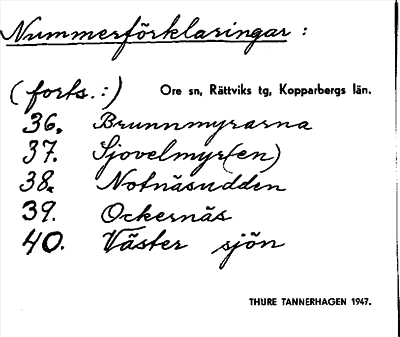 Nummerförklaringar :
(forts. :) Ore sn, Rättviks tg, Kopparbergs län.
36. Brunnmyrarna
37. Sjovelmyr(en)
38. Notnäsudden
39. Ockernäs
40. Väster sjön
THURE TANNERHAGEN 1947.